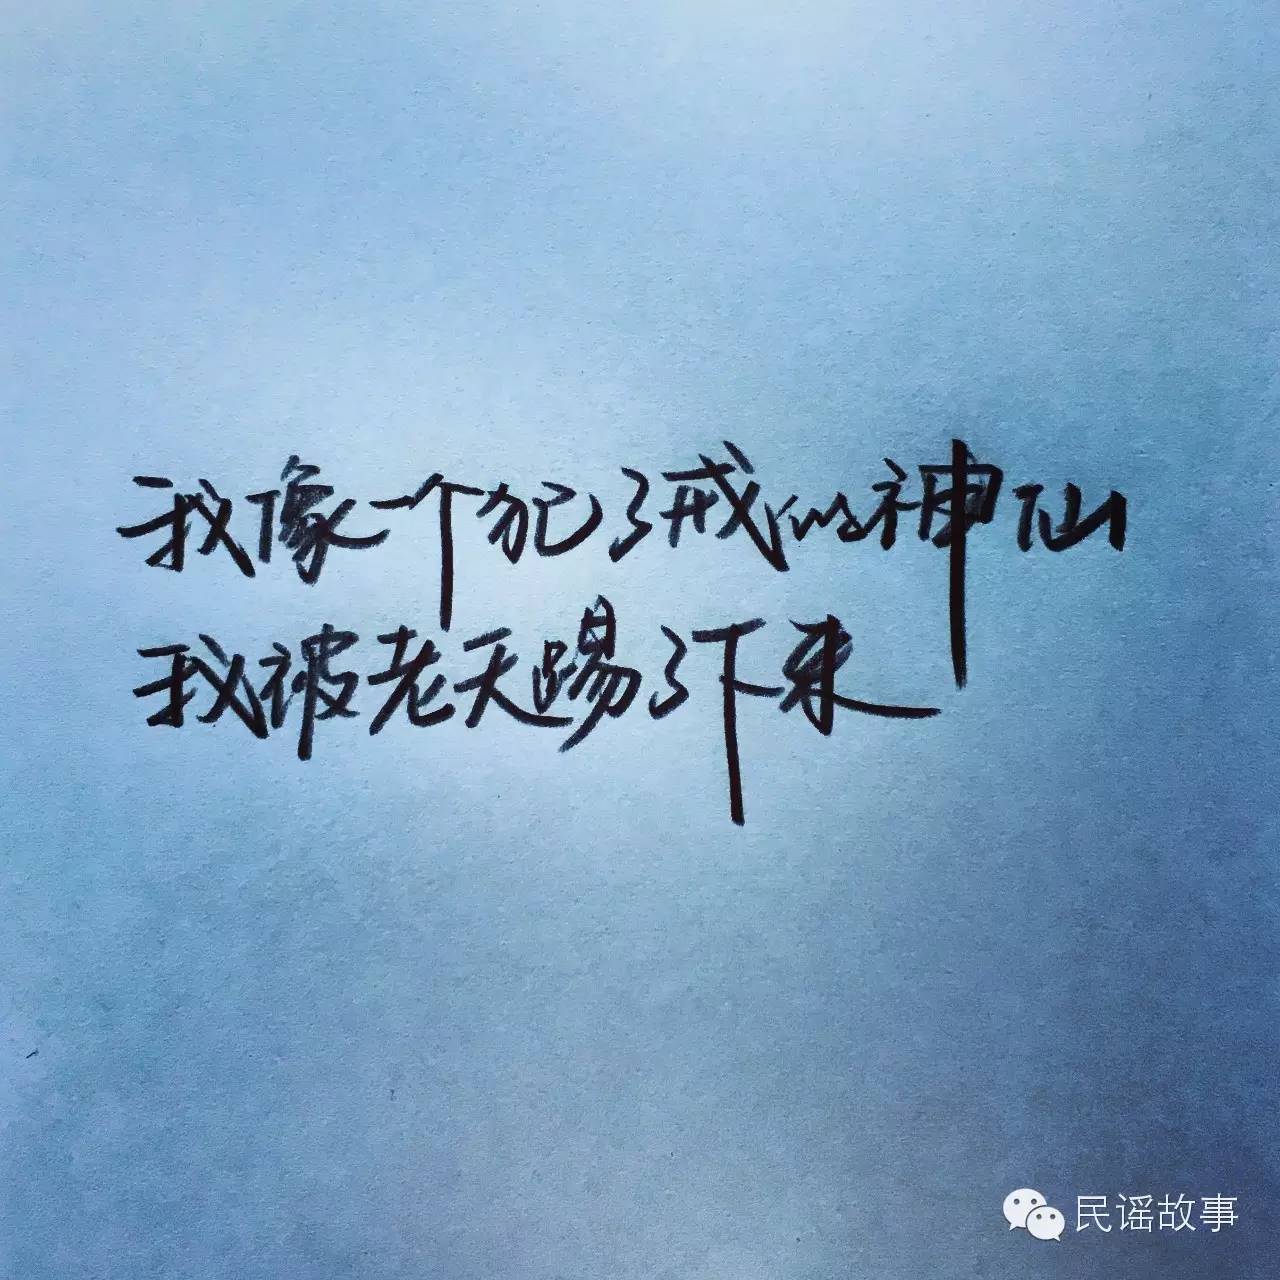 我像一个犯了戒的神仙
我被老天踢了下来
民谣故事